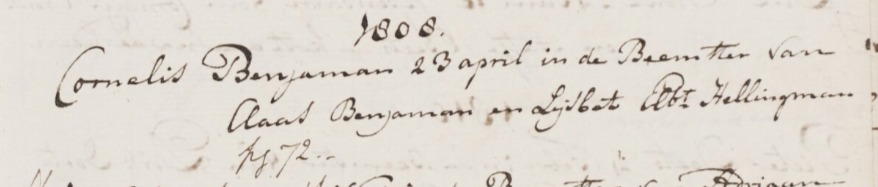 1808.
Cornelis Benjaman 23 april in de Beemster van
Claas Benjaman en Lijsbet Abt Hellingman
pg 72..
Adriaan